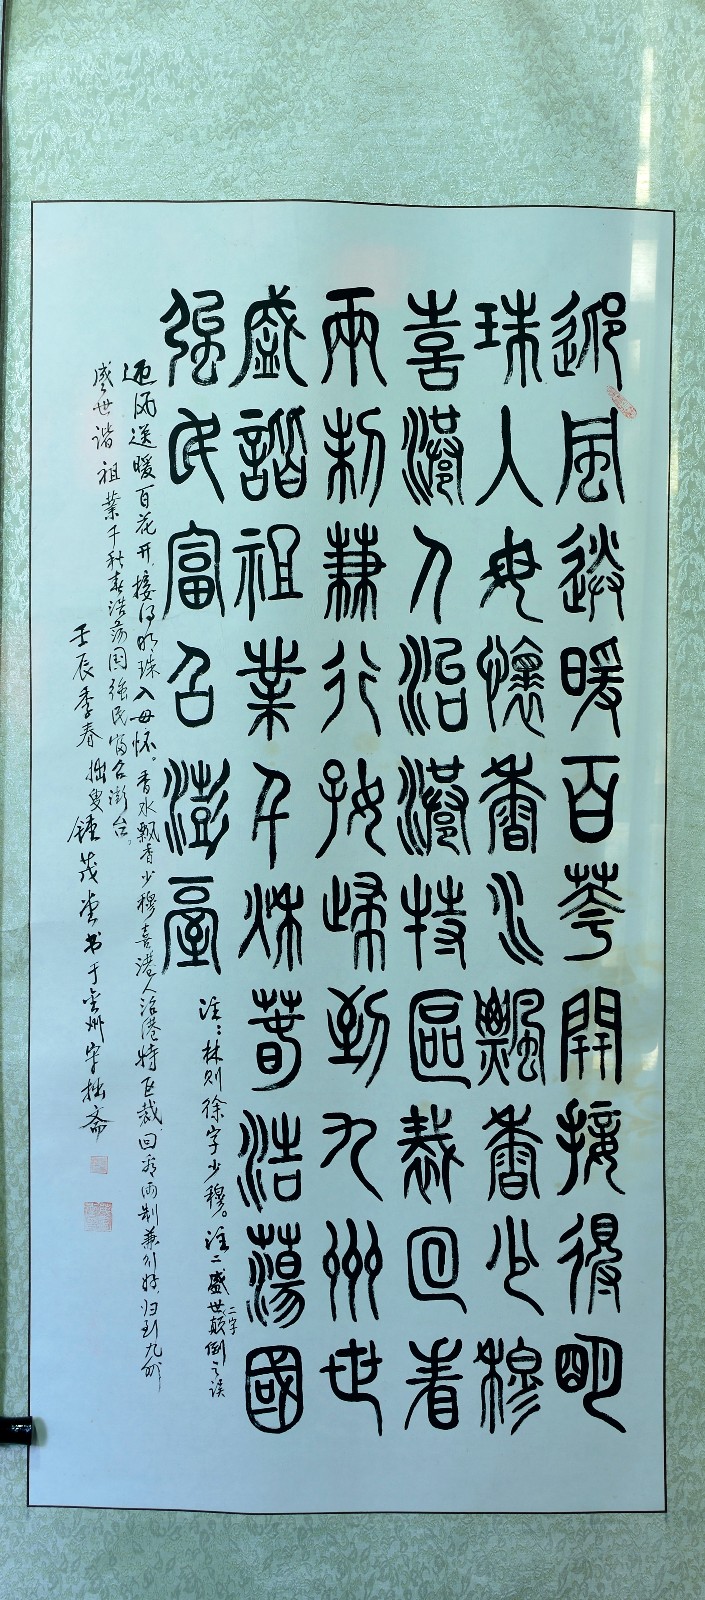 迎風送暖百花開接得明
珠人母懷香水飄香少穆
喜港人治港特區裁回看
兩制兼行好歸到九州世
盛諧祖業千秋春浩蕩國
强民富召澎臺
注：林则徐字少穆。注二盛世二字颠倒之误
迎风送暖百花开，接得明珠入母怀。香水飘香少穆喜港人治港特区裁回看两制兼行好，归到九州
盛世谐祖業千秋春浩荡国强民富召澎台。
壬辰季春拙叟鍾茂堂书于金州守拙斋